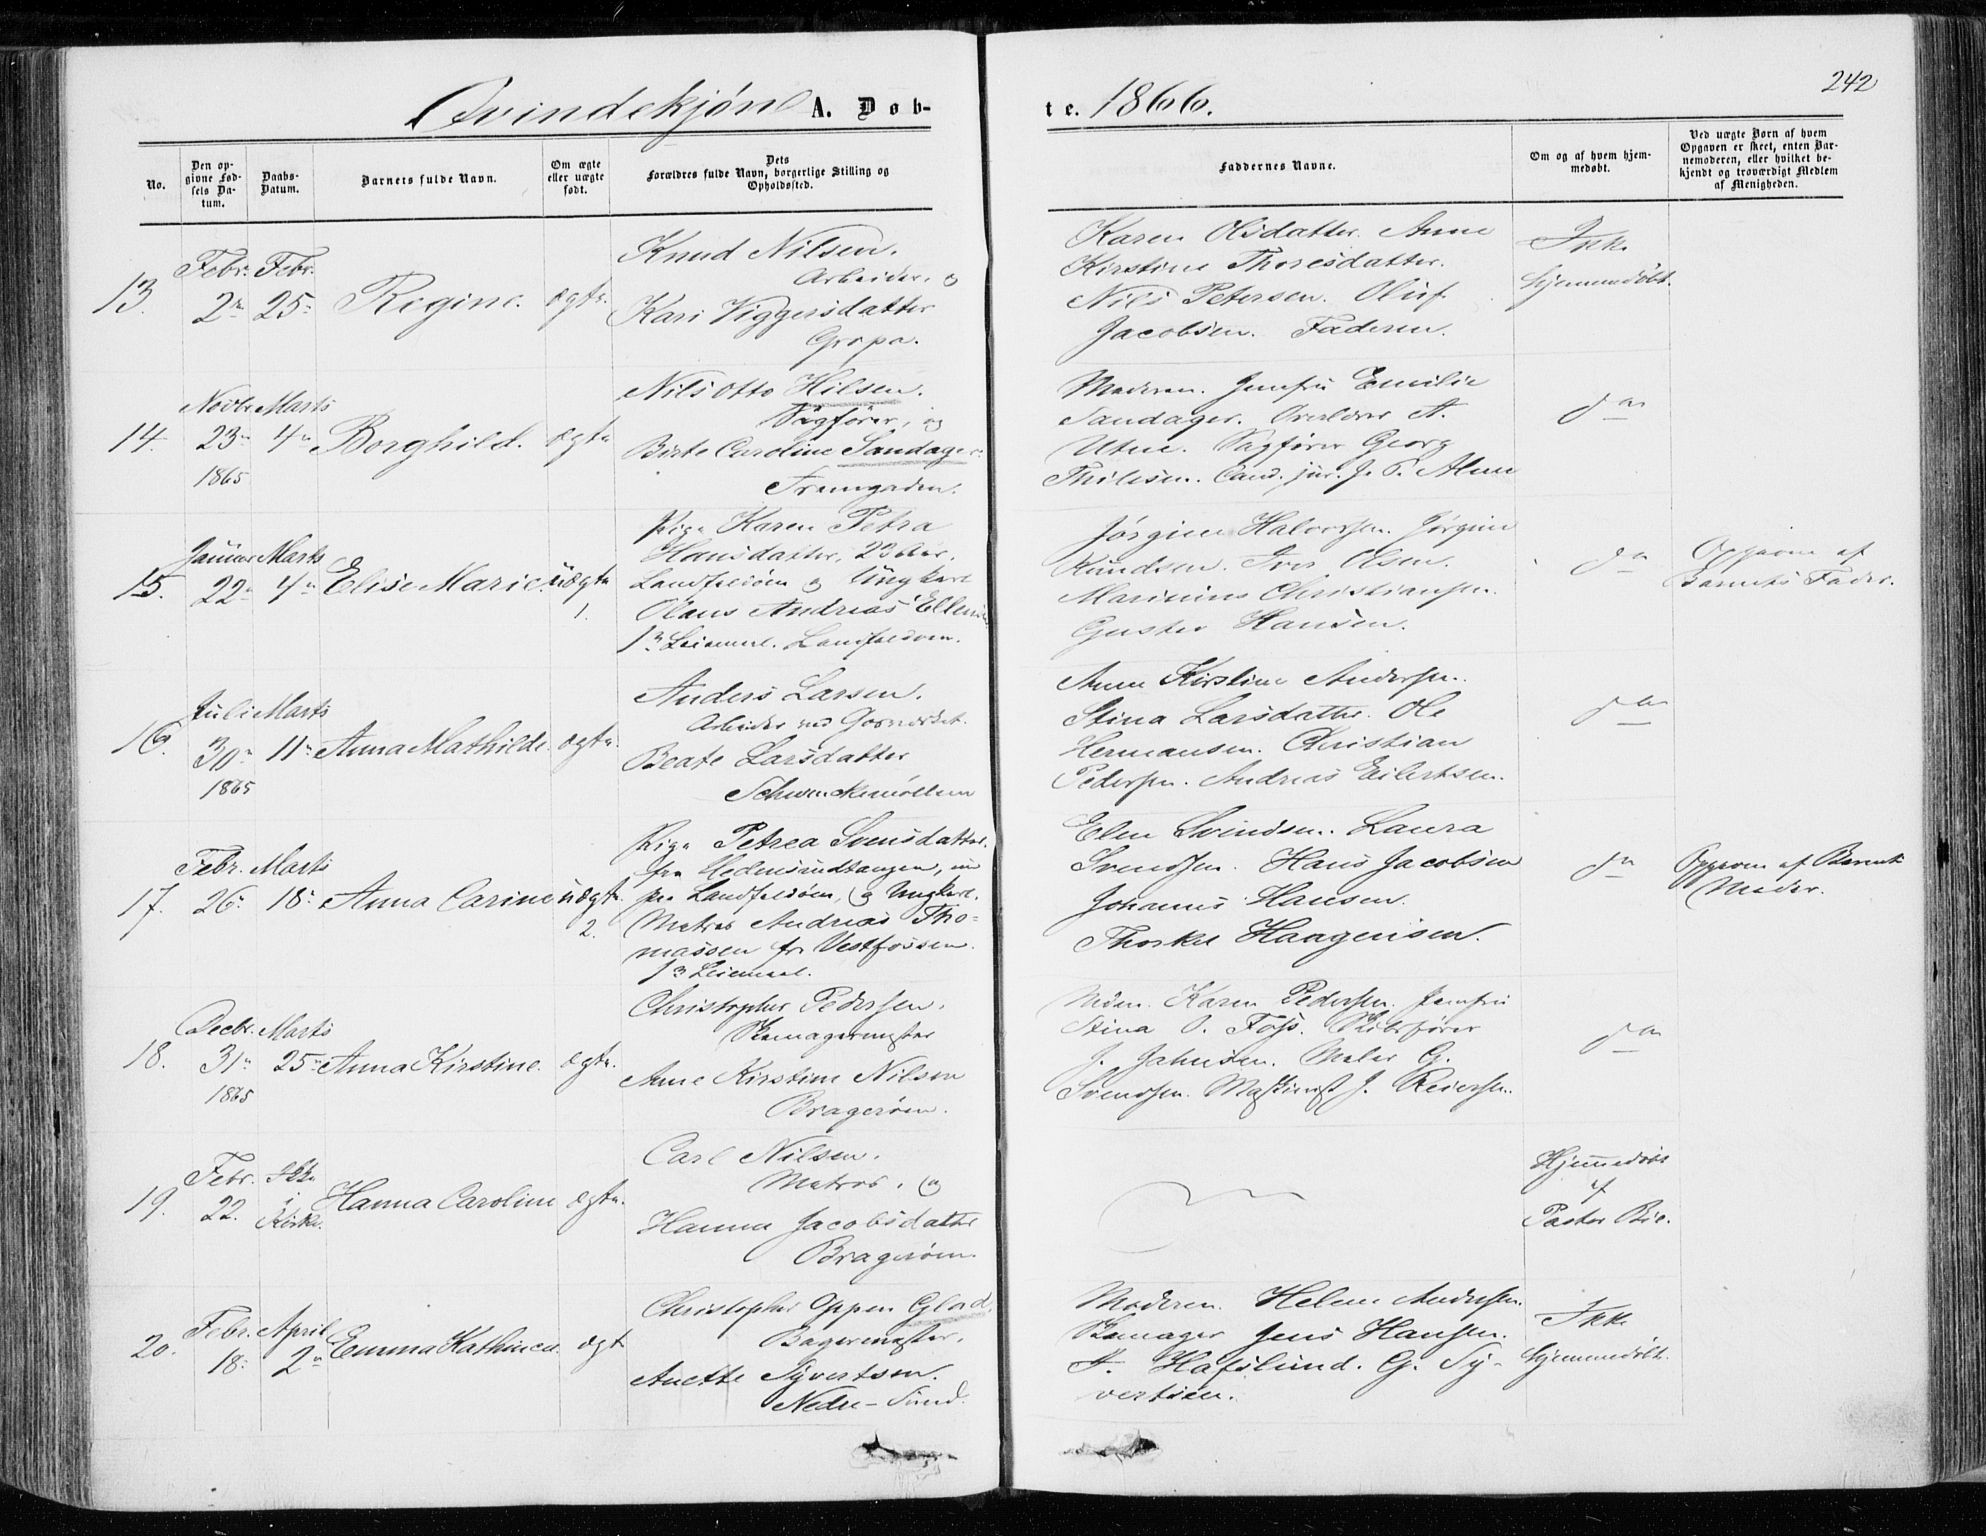 242
Qvindekjøn A. Døb-
te. 1866.
No.
Den op-
givne Fød-
sels Da-
tum.
Daabs-
Datum.
Barnets fulde Navn.
Om ægte
eller uægte
født.
Dets
Forældres fulde Navn, borgerlige Stilling og
Opholdssted.
Faddernes Navne.
Om og af hvem hjem-
medøbt.
Ved uægte Børn af hvem
Opgaven er skeet, enten Bar-
nemoderen, eller hvilket be-
kjendt og troværdigt Medlem
af Menigheden.
13.
Febr.
2
Febr.
25
Regine.
ægte.
Knud Nilsen.
Arbeider. og
Kari Viggersdatter
Gropa.
Karen Olsdatter. Anne
Kirstine Thoresdatter.
Nils Petersen. Oluf
Jacobsen. Faderen.
Ikke
hjemmedøbt.
14.
Novbr.
23
1865
Marts
4
Borghild.
ægte
Nils Otto Hilsen.
Sagfører, og
Birte Caroline Sandager.
Fremgaden.
Moderen. Jomfru Emilie
Sandager. Overlærer A.
Utne. Sagfører Georg
Thilesen. Cand. jur. J. P. Alme
do
15.
Januar
22
Marts
4
Elise Marie.
uægte
1.
Pige Karen Petra
Hansdatter, 23 Aar,
Landfaldøen og Ungkarl
Olaus Andreas
1 Leiermaal. Landfaldøen.
Jørgine Halvorsen. Jørgine
Knudsen. Iver Olsen.
Marinius Christiansen.
Gustav Hansen.
do
Opgaven af
Barnets Fader.
16.
Juli
30
1865
Marts
11
Anna Mathilde.
ægte.
Anders Larsen.
Arbeider ved Gasværket.
Beate Larsdatter
Schwenckemøllen
Anne Kirstine Andersen.
Stina Larsdatter. Ole
Hermansen. Christian
Pedersen. Andreas Eilertsen.
do
17.
Febr.
26
Marts
18
Anna Carine
uægte.
2.
Pige Petrea Svensdatter.
fra Hedensrudtangen, nu
paa Landfaldøen, og Ungkarl.
Matros Andreas Tho-
massen fr Vestfossen.
1 Leiermaal.
Elen Svendsen. Laura
Svendsen. Hans Jacobsen
Johannes Hansen.
Thorkel Haagensen.
do
Opgaven af Barnets
Moder.
18.
Decbr.
31
1865
Marts
25
Anna Kirstine.
ægte.
Christopher Pedersen.
Skomagermester
Anne Kirstine Nilsen
Bragerøen.
Mdm. Karen Pedersen. Jomfru
Stina O. Foss. Skibsfører
J. Jahnsen. Maler G.
Svendsen. Maskinist J. Reiersen.
do
19.
Febr.
22.
Ikke
i
Kirke.
Hanna Caroline
ægte.
Carl Nilsen.
Matros. og
Hanna Jacobsdatter
Bragerøen.
Hjemmedøbt
af
Pastor Bie.
20.
Febr.
18
April
2
Emma Kathinca
ægte
Christopher Oppen Glad.
Bagermester.
Anette Syvertsen.
Nedre-Sund.
Moderen. Helene Andersen.
Skomager Jens Hansen.
F. Hafslund. G. Sy-
vertsen.
Ikke
hjemmedøbt.